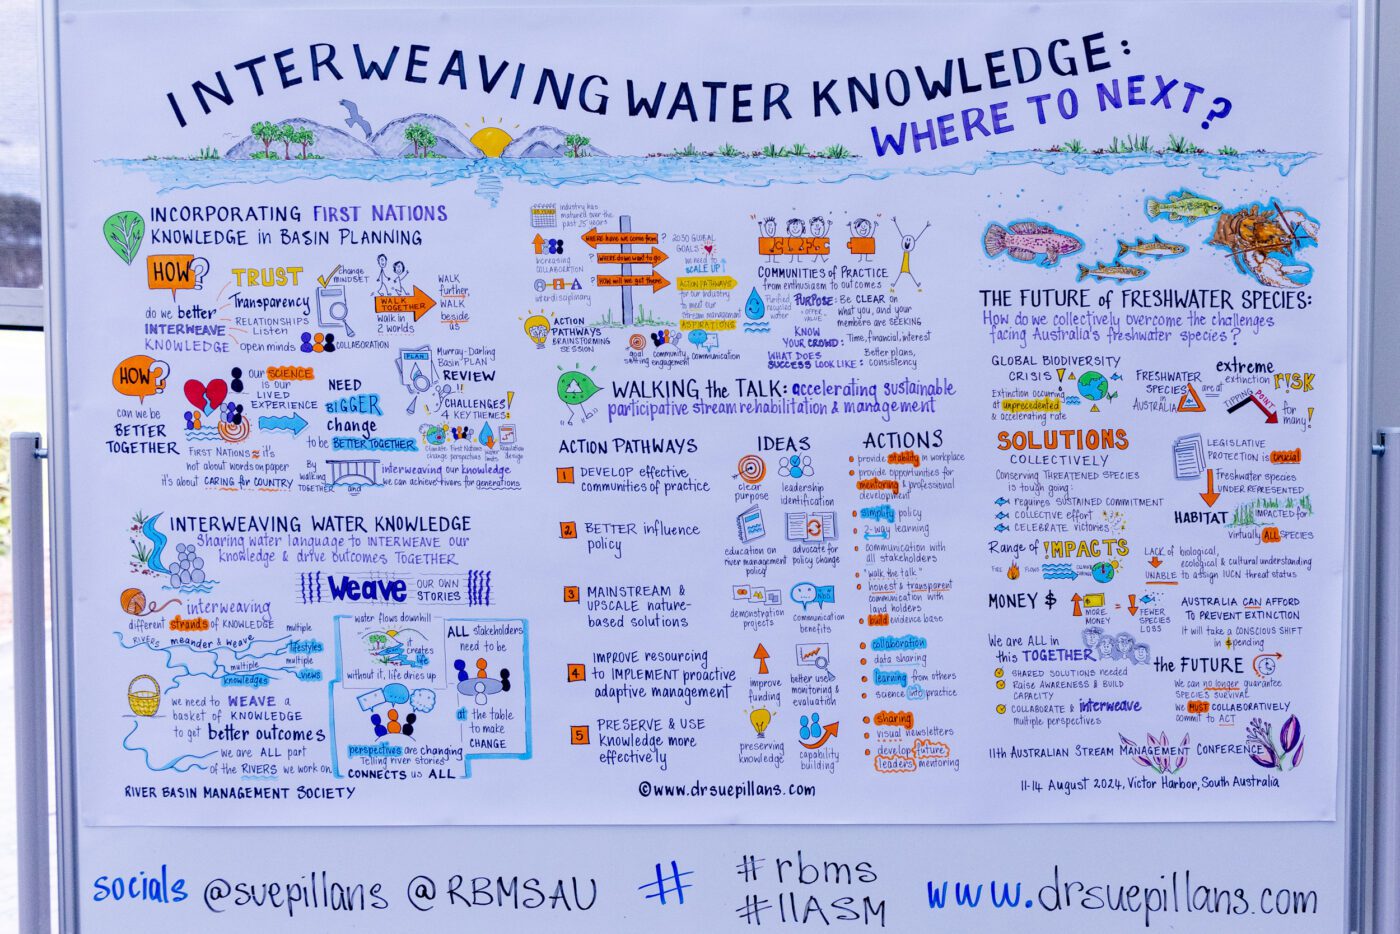 INTERWEAVING WATER KNOWLEDGE:
WHERE TO NEXT?
INCORPORATING FIRST NATIONS
KNOWLEDGE in BASIN PLANNING
HOW?
do we better
INTERWEAVE
KNOWLEDGE
TRUST
Transparency
RELATIONSHIPS
Listen
open minds
change
MINDSET
COLLABORATION
WALK
TOGETHER
walk in
2 worlds
WALK
further,
WALK
beside
us
HOW?
can we be
BETTER
TOGETHER
our SCIENCE
is our
LIVED
EXPERIENCE
FIRST NATIONS it's
not about words on paper
it's about CARING for COUNTRY
NEED
BIGGER
change
to be BETTER TOGETHER
PLAN
Murray-Darling
Basin PLAN
REVIEW
CHALLENGES!
4 KEY THEMES:
Climate
change
First Nations
perspectives
Regulation
design
By
walking
TOGETHER
and
interweaving our knowledge
we can achieve rivers for generations
INTERWEAVING WATER KNOWLEDGE
Sharing water language to INTERWEAVE our
knowledge & drive outcomes TOGETHER
Weave OUR OWN
STORIES
interweaving
different strands of KNOWLEDGE
RIVERS meander & weave
multiple
lifestyles
multiple
knowledges
multiple
views
we need to WEAVE a
basket of KNOWLEDGE
to get better outcomes
we are ALL part
of the RIVERS we work on
water flows downhill
it
creates
life
without it, life dries up
perspectives are changing
Telling river stories
CONNECTS us ALL
ALL stakeholders
need to be
at the table
to make
CHANGE
RIVER BASIN MANAGEMENT SOCIETY
25 YEARS
industry has
matured over the
past 25 years
increasing
COLLABORATION
interdisciplinary
WHERE have we come from?
WHERE do we want to go
HOW will we get there
?
?
?
2030 GLOBAL
GOALS
we need to
SCALE UP!
ACTION PATHWAYS
for our industry
to meet our
stream management
ASPIRATIONS
ACTION
PATHWAYS
BRAINSTORMING
SESSION
goal
setting
community
engagement
communication
COMMUNITIES of PRACTICE
from enthusiasm to outcomes
Purified
recycled
water
PURPOSE: Be CLEAR on
+ OFFER
VALUE
what you, and your
members are SEEKING
KNOW
YOUR CROWD: Time, financial, interest
WHAT DOES
SUCCESS LOOK LIKE: Better plans,
consistency
WALKING the TALK: accelerating sustainable
participative stream rehabilitation & management
ACTION PATHWAYS
1 DEVELOP effective
communities of practice
2 BETTER influence
policy
3 MAINSTREAM &
UPSCALE nature-
based solutions
4 IMPROVE resourcing
to IMPLEMENT proactive
adaptive management
5 PRESERVE & USE
Knowledge more
effectively
IDEAS
clear
purpose
leadership
identification
education on
river management
policy
advocate for
policy change
demonstration
projects
communication
benefits
improve
funding
better use of
monitoring &
evaluation
preserving
knowledge
capability
building
ACTIONS
provide stability in workplace
provide opportunities for
mentoring & professional
development
simplify policy
2-way learning
communication with
all stakeholders
"walk the talk"
honest & transparent
communication with
land holders
build evidence base
collaboration
data sharing
learning from others
science into practice
sharing
visual newsletters
develop future
leaders mentoring
©www.drsuepillans.com
THE FUTURE of FRESHWATER SPECIES:
How do we collectively overcome the challenges
facing Australia's freshwater species?
GLOBAL BIODIVERSITY
CRISIS!
Extinction occurring
at unprecedented
& accelerating rate
FRESHWATER
SPECIES
in
AUSTRALIA
are at
extreme
extinction RISK
TIPPING POINT
for
many!
SOLUTIONS
COLLECTIVELY
Conserving THREATENED SPECIES
is tough going:
requires SUSTAINED COMMITMENT
COLLECTIVE effort
CELEBRATE victories
Range of IMPACTS
FIRE
FLOWS
MONEY $
MORE
MONEY
=
FEWER
SPECIES
LOSS
We are ALL in
this TOGETHER
SHARED SOLUTIONS needed
Raise AWARENESS & BUILD
CAPACITY
COLLABORATE & interweave
multiple perspectives
LEGISLATIVE
PROTECTION is crucial
Freshwater species
UNDER REPRESENTED
HABITAT IMPACTED for
virtually ALL SPECIES
LACK of biological,
ecological & cultural understanding
UNABLE to assign IUCN threat status
AUSTRALIA CAN AFFORD
TO PREVENT EXTINCTION
It will take a CONSCIOUS SHIFT
in $pending
the FUTURE
We can no longer guarantee
SPECIES SURVIVAL
We MUST COLLABORATIVELY
commit to ACT
11th AUSTRALIAN STREAM MANAGEMENT CONFERENCE
11-14 August 2024, Victor Harbor, South Australia
socials @suepillans @RBMSAU # #rbms
#11ASM
www.drsuepillans.com